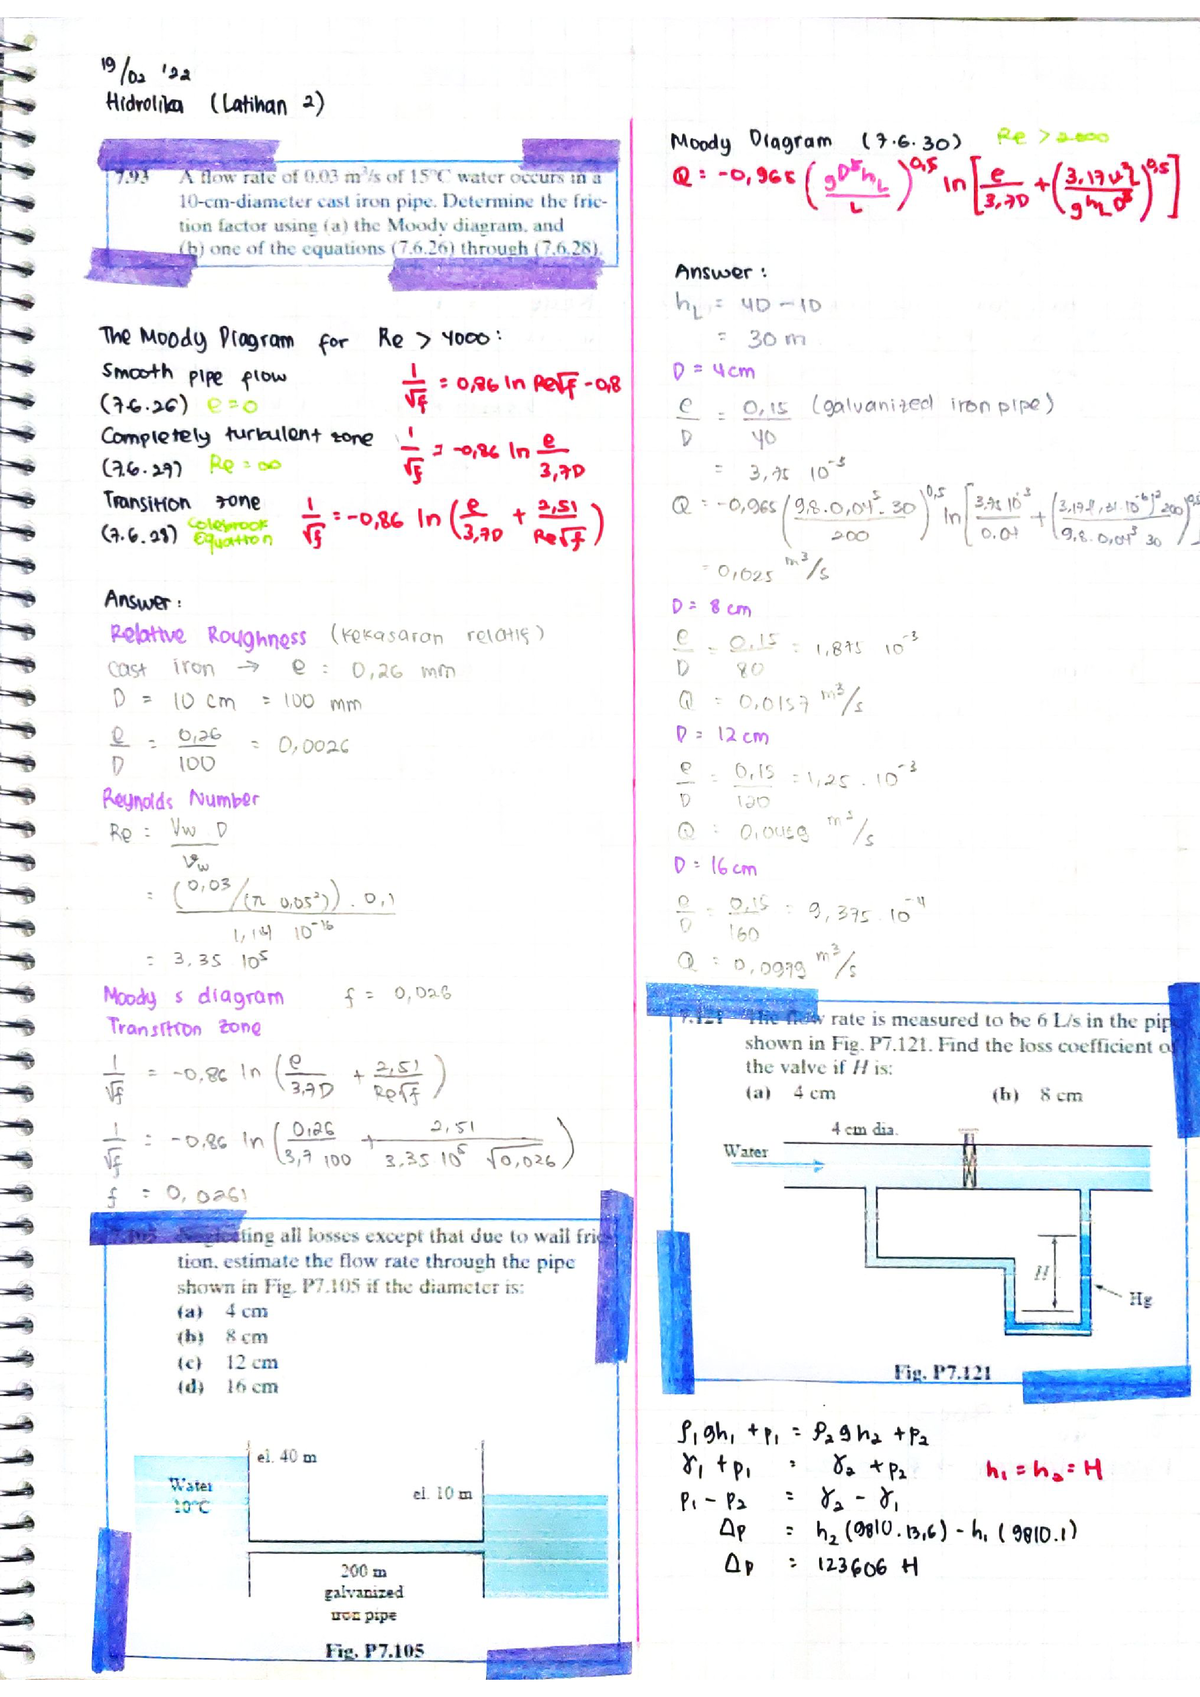 19/02 '22
Hidrolika (Latihan 2)
7.93 A flow rate of 0.03 m³/s of 15°C water occurs in a
10-cm-diameter cast iron pipe. Determine the fric-
tion factor using (a) the Moody diagram, and
(b) one of the equations (7.6.26) through (7.6.28).
The Moody Diagram for Re > 4000 :
Smooth pipe flow
(7.6.26) e = 0
1/√f = 0,86 ln Re√f - 0,8
Completely turbulent zone
(7.6.27) Re = ∞
1/√f = -0,86 ln e/3,7D
Transition zone
(7.6.28) Colebrook Equation
1/√f = -0,86 ln (e/3,7D + 2,51/Re√f)
Answer :
Relative Roughness (kekasaran relatif)
Cast iron → e : 0,26 mm
D = 10 cm = 100 mm
e/D = 0,26/100 = 0,0026
Reynolds Number
Re : Vw D/νw
= (0,03/(π 0,05²)) . 0,1 / 1,141 10⁻¹⁶
= 3,35 10⁵
Moody s diagram f = 0,026
Transition zone
1/√f = -0,86 ln (e/3,7D + 2,51/Re√f)
1/√f = -0,86 ln (0,26/3,7 100 + 2,51/3,35 10⁵ √0,026)
f = 0,0261
Neglecting all losses except that due to wall fric-
tion, estimate the flow rate through the pipe
shown in Fig. P7.105 if the diameter is:
(a) 4 cm
(b) 8 cm
(c) 12 cm
(d) 16 cm
el. 40 m
Water
10°C
el. 10 m
200 m
galvanized
iron pipe
Fig. P7.105
Moody Diagram (7.6.30) Re > 2000
Q = -0,965 (gD⁵hL/L)^0,5 ln [e/3,7D + (3,17ν²L/ghLD³)^0,5]
Answer :
hL = 40 - 10
= 30 m
D = 4 cm
e/D = 0,15/40 (galvanized iron pipe)
= 3,75 10⁻³
Q = -0,965 (9,8.0,04⁵.30/200)^0,5 ln [3,75 10⁻³/0,04 + (3,17(1,31.10⁻⁶)² 200/9,8.0,04³ 30)^0,5]
= 0,025 m³/s
D = 8 cm
e/D = 0,15/80 = 1,875 10⁻³
Q = 0,0157 m³/s
D = 12 cm
e/D = 0,15/120 = 1,25 . 10⁻³
Q = 0,0459 m³/s
D = 16 cm
e/D = 0,15/160 = 9,375 . 10⁻⁴
Q = 0,0979 m³/s
7.121 The flow rate is measured to be 6 L/s in the pip
shown in Fig. P7.121. Find the loss coefficient o
the valve if H is:
(a) 4 cm (b) 8 cm
4 cm dia.
Water
H
Hg
Fig. P7.121
ρ₁gh₁ + p₁ = ρ₂gh₂ + p₂
γ₁ + p₁ = γ₂ + p₂ h₁ = h₂ = H
p₁ - p₂ = γ₂ - γ₁
Δp = h₂ (9810.13,6) - h₁ (9810.1)
Δp = 123606 H